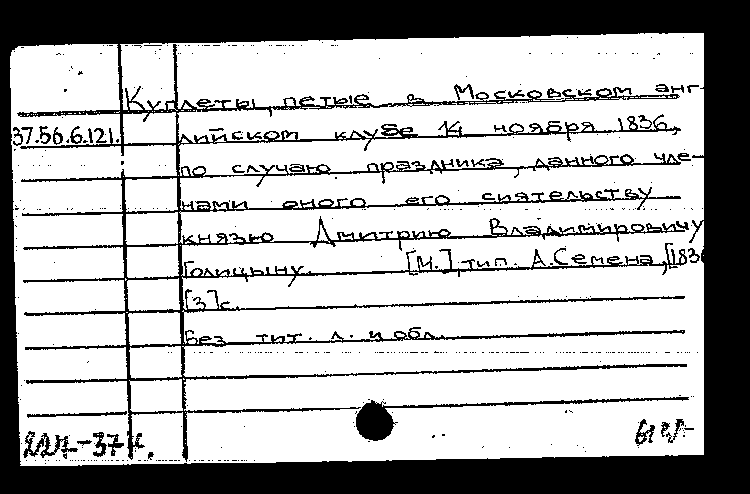 Куплеты, петые в Московском анг-
37.56.6.121. лийском клубе 14 ноября 1836,
по случаю праздника, данного чле-
нами оного его сиятельству
князю Дмитрию Владимировичу
Голицыну. [М.], тип. А. Семена, [1836
[3] с.
Без тит. л. и обл.